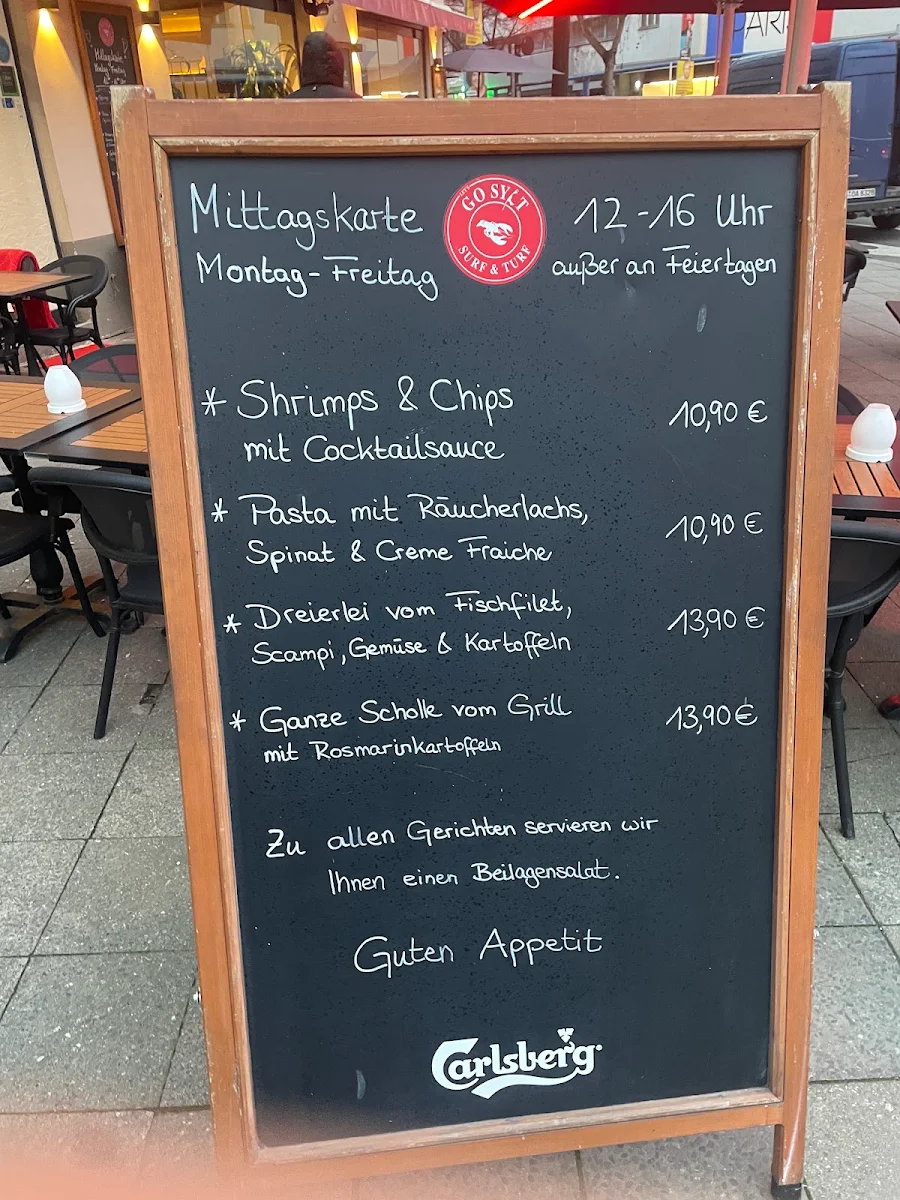 Mittagskarte
Montag-Freitag
GO SYLT
SURF & TURF
12-16 Uhr
außer an Feiertagen
* Shrimps & Chips 10,90 €
mit Cocktailsauce
* Pasta mit Räucherlachs, 10,90 €
Spinat & Creme Fraiche
* Dreierlei vom Fischfilet, 13,90 €
Scampi, Gemüse & Kartoffeln
* Ganze Scholle vom Grill 13,90 €
mit Rosmarinkartoffeln
Zu allen Gerichten servieren wir
Ihnen einen Beilagensalat.
Guten Appetit
Carlsberg